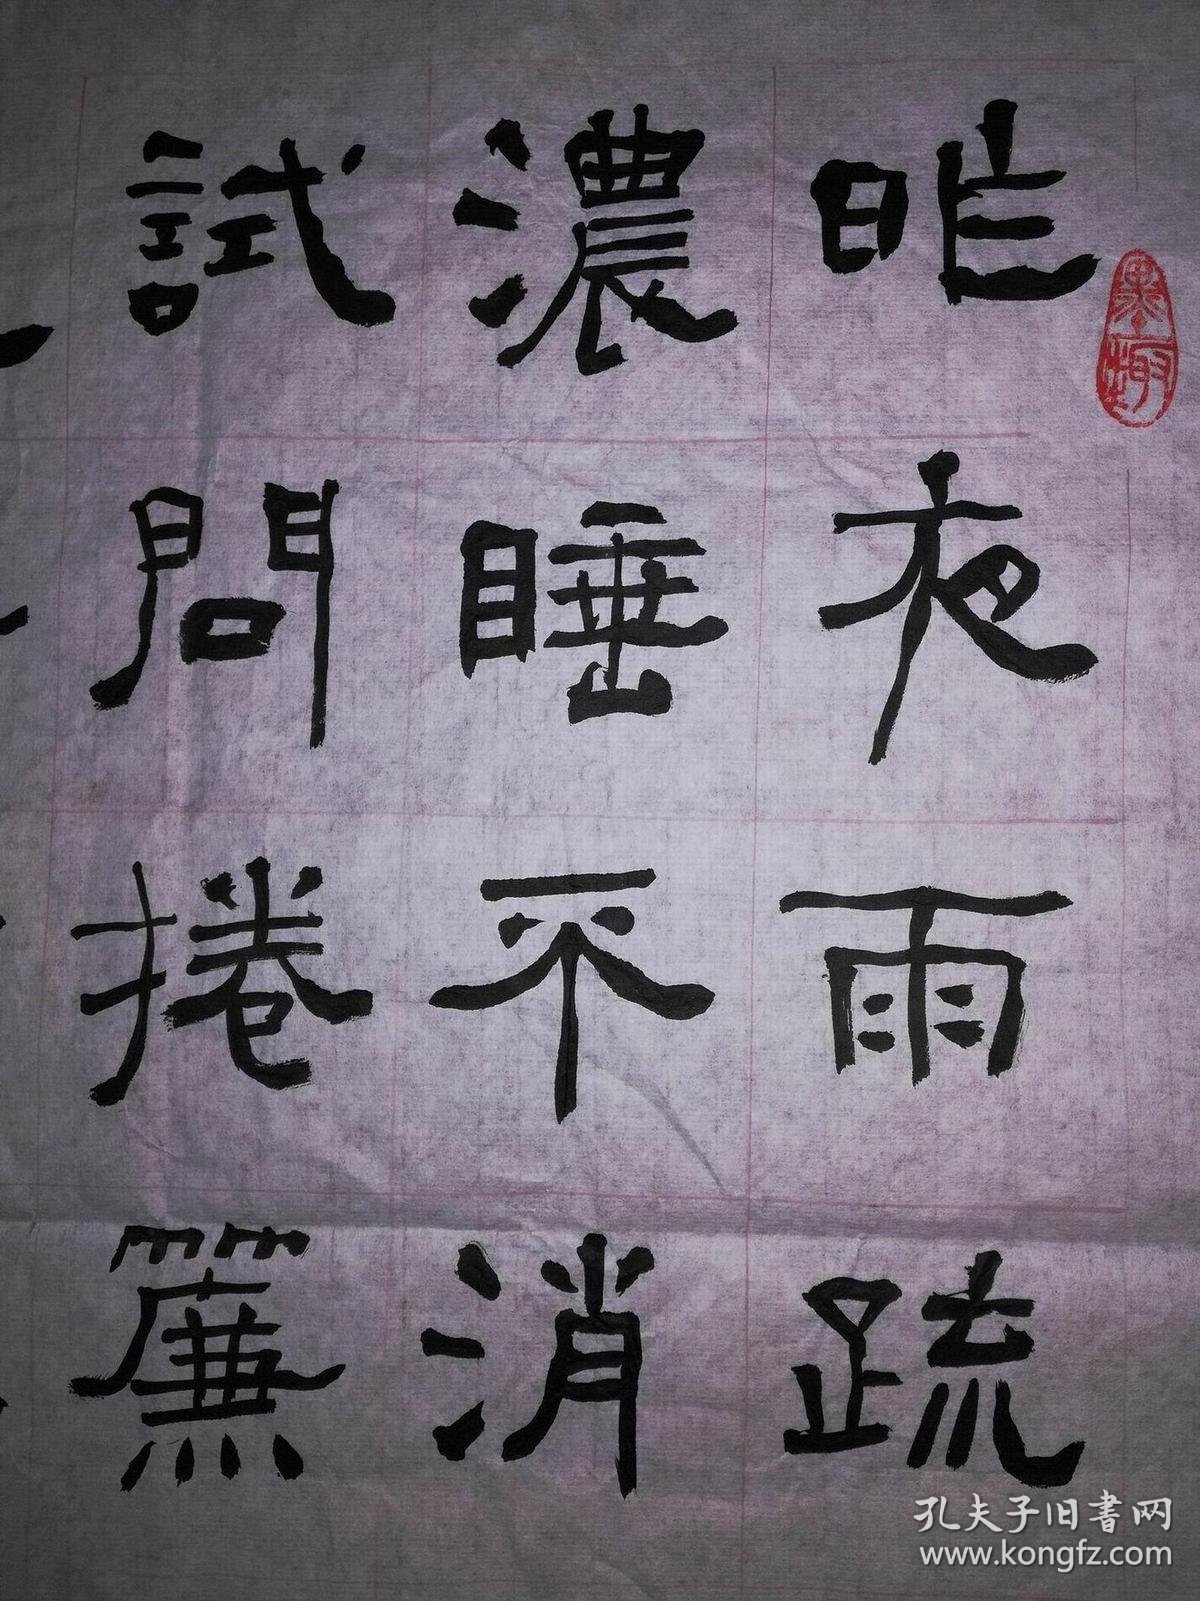 昨夜雨疏
濃睡不消
試問捲簾
孔夫子旧書网
www.kongfz.com